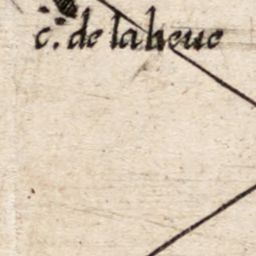 c̈. de la heue